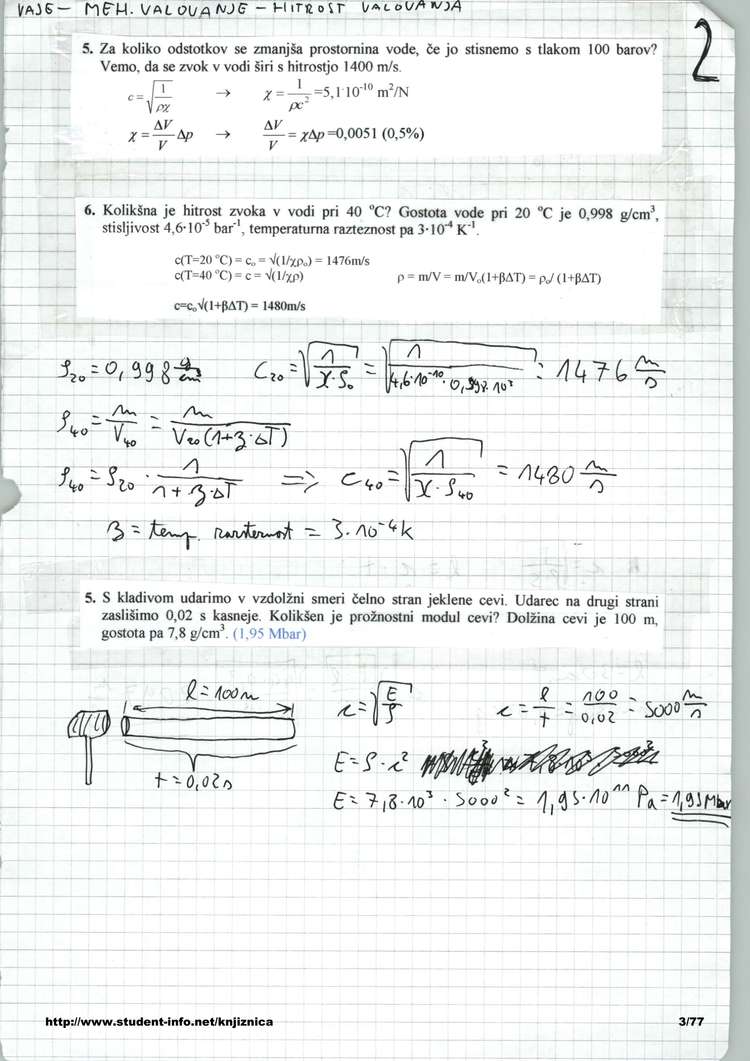 VAJE – MEH. VALOVANJE – HITROST VALOVANJA
2
5. Za koliko odstotkov se zmanjša prostornina vode, če jo stisnemo s tlakom 100 barov?
Vemo, da se zvok v vodi širi s hitrostjo 1400 m/s.
c = √(1/ρχ) → χ = 1/ρc² =5,1·10⁻¹⁰ m²/N
χ = ΔV/V Δp → ΔV/V = χΔp =0,0051 (0,5%)
6. Kolikšna je hitrost zvoka v vodi pri 40 °C? Gostota vode pri 20 °C je 0,998 g/cm³,
stisljivost 4,6·10⁻⁵ bar⁻¹, temperaturna razteznost pa 3·10⁻⁴ K⁻¹.
c(T=20 °C) = cₒ = √(1/χρₒ) = 1476m/s
c(T=40 °C) = c = √(1/χρ) ρ = m/V = m/Vₒ(1+βΔT) = ρₒ/ (1+βΔT)
c=cₒ√(1+βΔT) = 1480m/s
ρ₂₀ = 0,998 g/cm³ C₂₀ = √(1/χ·ρ₀) = √(1/4,6·10⁻¹⁰·0,998·10³) = 1476 m/s
ρ₄₀ = m/V₄₀ = m/V₂₀(1+β·ΔT)
ρ₄₀ = ρ₂₀ · 1/1+β·ΔT => C₄₀ = √(1/χ·ρ₄₀) = 1480 m/s
β = temp. razteznost = 3·10⁻⁴K
5. S kladivom udarimo v vzdolžni smeri čelno stran jeklene cevi. Udarec na drugi strani
zaslišimo 0,02 s kasneje. Kolikšen je prožnostni modul cevi? Dolžina cevi je 100 m,
gostota pa 7,8 g/cm³. (1,95 Mbar)
l = 100m c = √(E/ρ) c = l/t = 100/0,02 = 5000 m/s
t = 0,02s E = ρ·c²
E = 7,8·10³ · 5000² = 1,95·10¹¹ Pa = 1,95Mbar
http://www.student-info.net/knjiznica 3/77